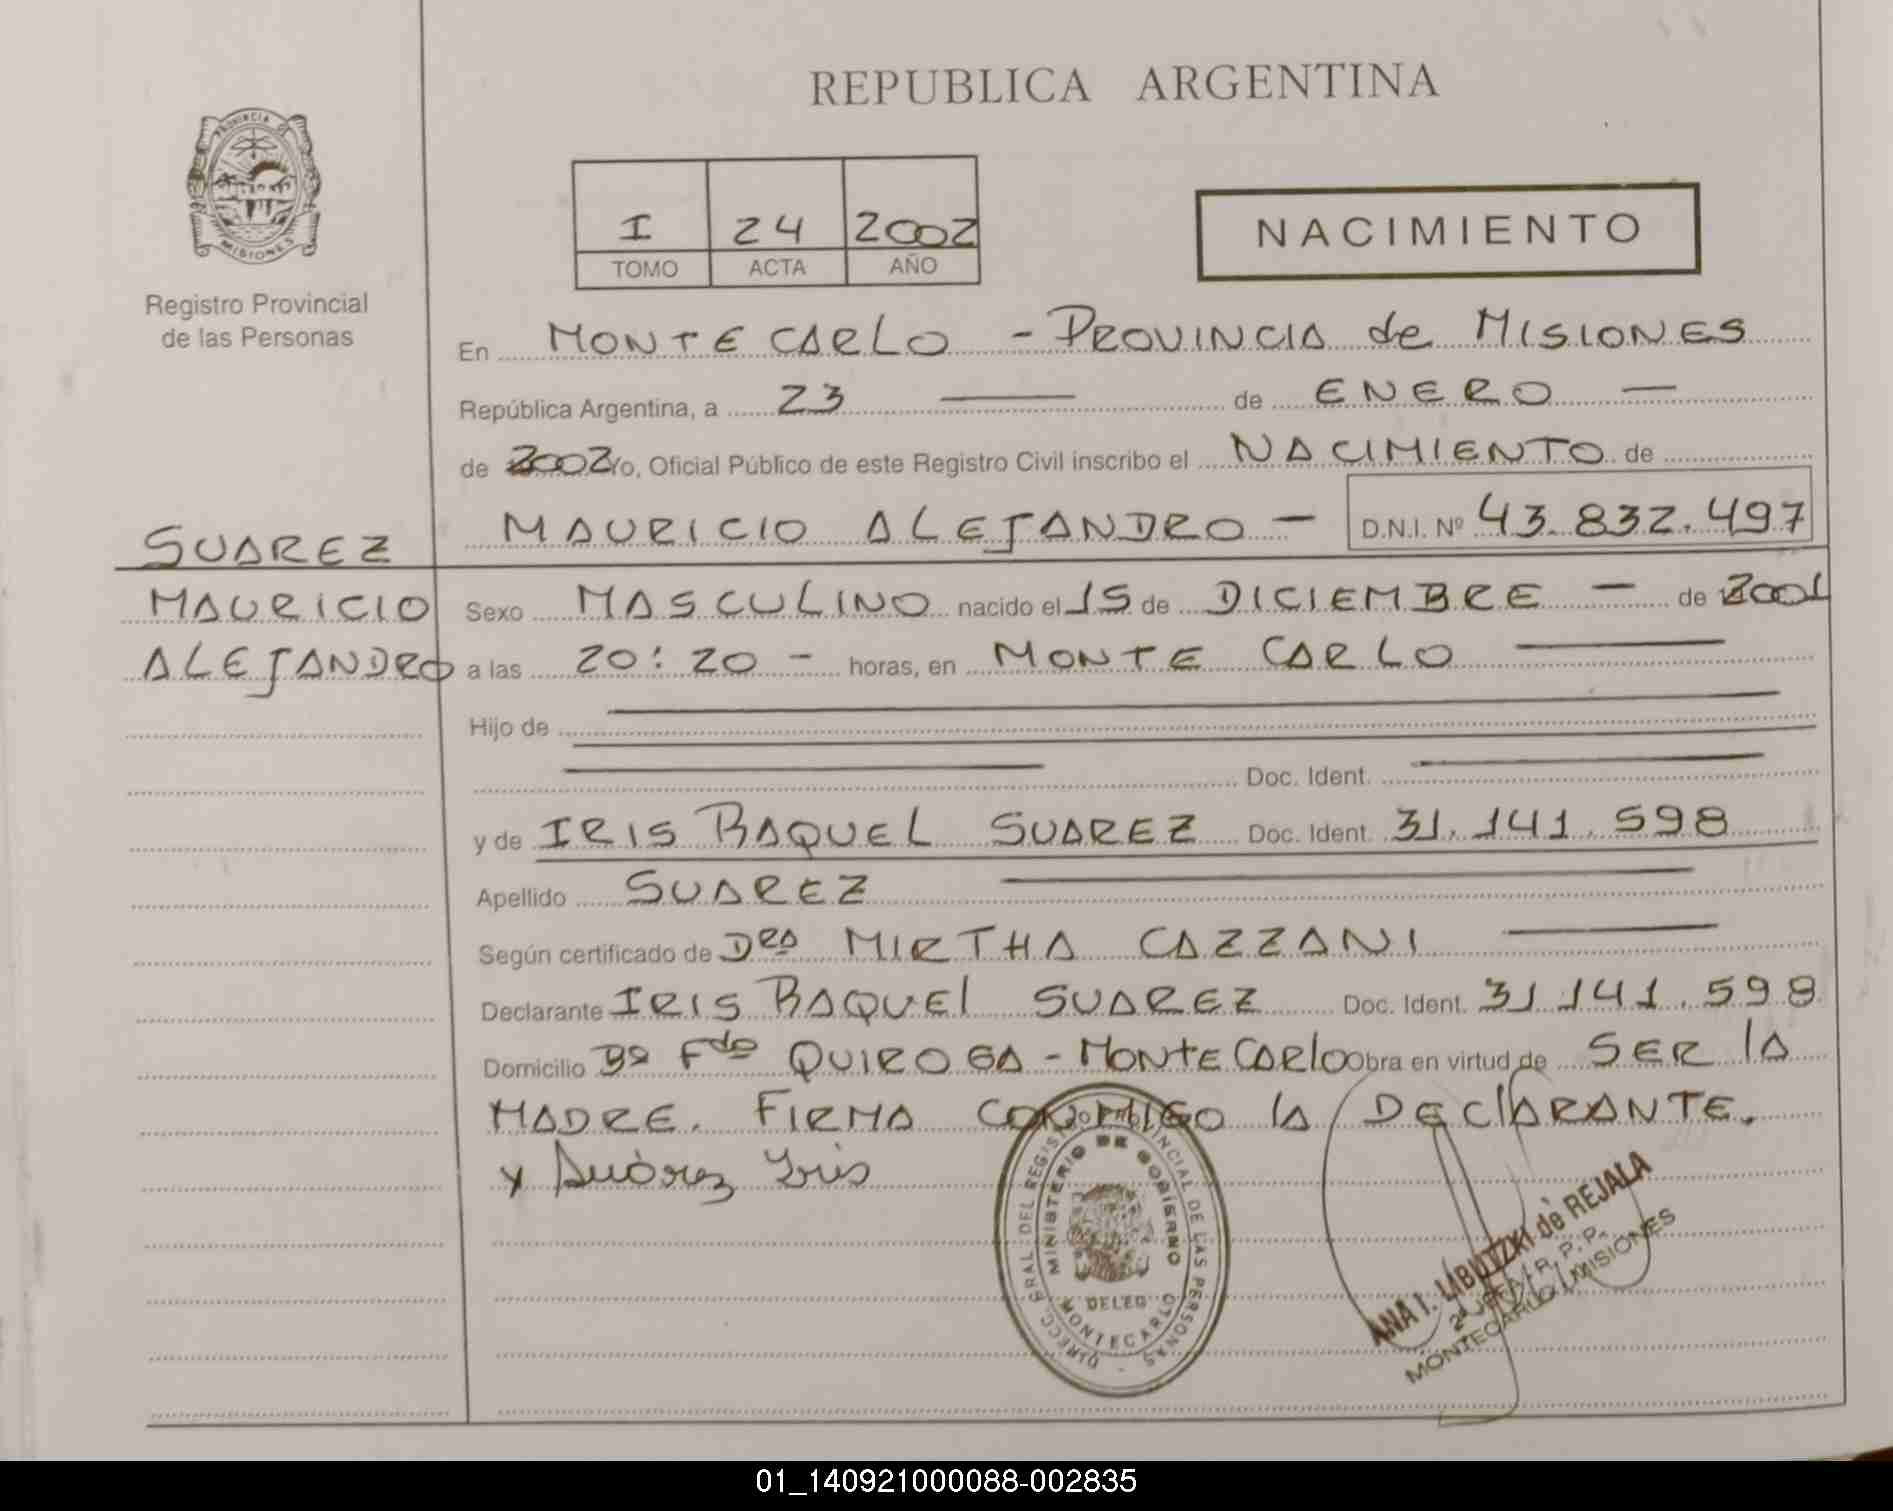 REPUBLICA ARGENTINA
PROVINCIA DE
MISIONES
Registro Provincial
de las Personas
I 24 2002
TOMO ACTA AÑO
NACIMIENTO
En MONTE CARLO - PROVINCIA de MISIONES
República Argentina, a 23 de ENERO
de 2002 Yo, Oficial Público de este Registro Civil inscribo el NACIMIENTO de
MAURICIO ALEJANDRO - D.N.I. Nº 43.832.497
SUAREZ
MAURICIO
ALEJANDRO
Sexo MASCULINO nacido el 15 de DICIEMBRE - de 2001
a las 20:20 - horas, en MONTE CARLO
Hijo de
Doc. Ident.
y de IRIS RAQUEL SUAREZ Doc. Ident. 31.141.598
Apellido SUAREZ
Según certificado de Dra MIRTHA CAZZANI
Declarante IRIS RAQUEl SUAREZ Doc. Ident. 31.141.598
Domicilio Bº Fdo QUIROGA - MONTE CARlO Obra en virtud de SER lA
MADRE. FIRMA CONMIGO lA DEClARANTE.
x Suárez Iris
DIRECC. GRAL DEL REGISTRO PROVINCIAL DE LAS PERSONAS
MINISTERIO DE GOBIERNO
DELEG
MONTECARLO
ANA I. LIBUTZKI de REJALA
MONTECARLO MISIONES
01_140921000088-002835